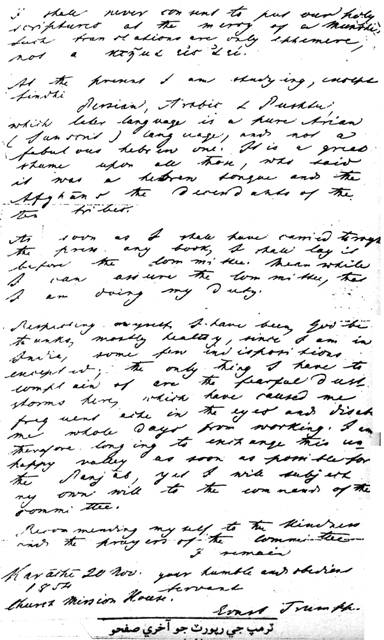 I shall never consent to put our holy
scriptures at the mercy of a Munshi.
Such translations are only ephemere,
not a
At the present I am studying, except
Sindhi
Persian, Arabic & Pushtu,
which later language is a pure Arian
(Sunscrit) language, and not a
fabulous hebrew one. It is a great
shame upon all those, who said
it was a hebrew tongue and the
Afghāns the decendants of the
ten tribes.
As soon as I shall have carried through
the press any book, I shall lay it
before the Committee. Meanwhile
I can assure the Committee, that
I am doing my Duty.
Respecting myself I have been, God be
thanks, mostly healthy, since I am in
India, some few indispositions
excepted; the only thing I have to
complain of are the fearful dust
storms here, which have caused me
frequent ache in the eyes and disab
me whole days from working. I am
therefore longing to exchange this un
happy valley as soon as possible for
the Panjab, yet I will subject
my own will to the commands of the
Committee.
Recommending myself to the kindness
and the prayers of the Committee
I remain
Karāchi 20 Nov. your humble and obedient
1854 Servant
Church Mission House. Ernest Trumpp.
ٽرمپ جي رپورٽ جو آخري صفحو